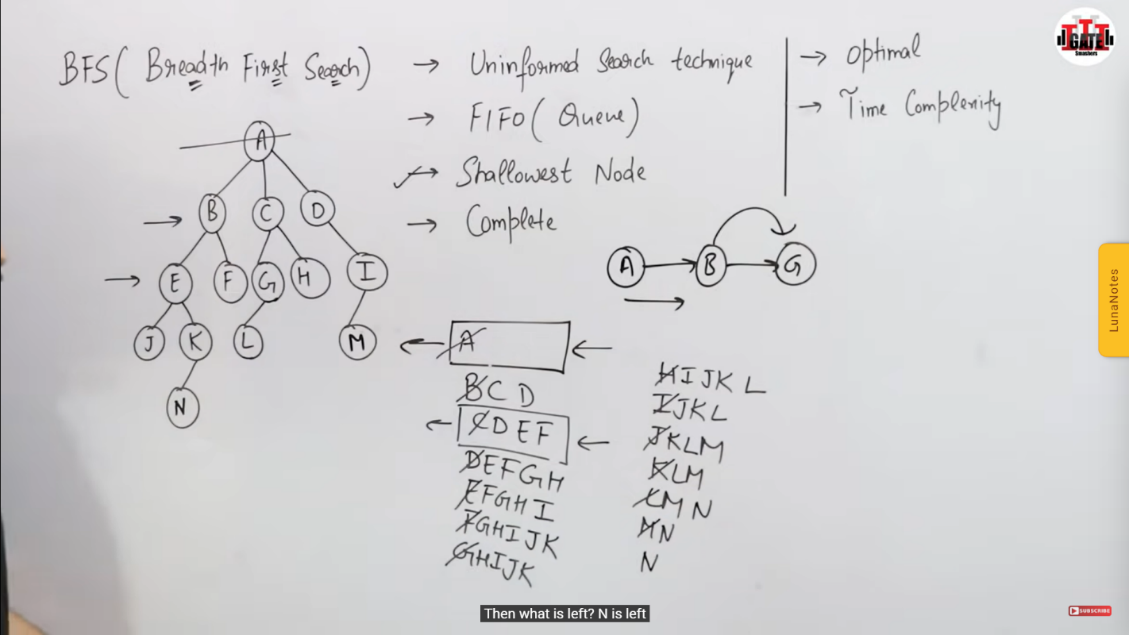 BFS( Breadth First Search)
→ Uninformed Search technique
→ FIFO( Queue)
→ Shallowest Node
→ Complete
→ Optimal
→ Time Complexity
A
B C D
E F G H I
J K L M
N
A → B → G
A
BCD
CDEF
DEFGH
EFGHI
FGHIJK
GHIJK
HIJKL
IJKL
JKLM
KLM
LMN
MN
N
GATE
Smashers
LunaNotes
Then what is left? N is left
SUBSCRIBE